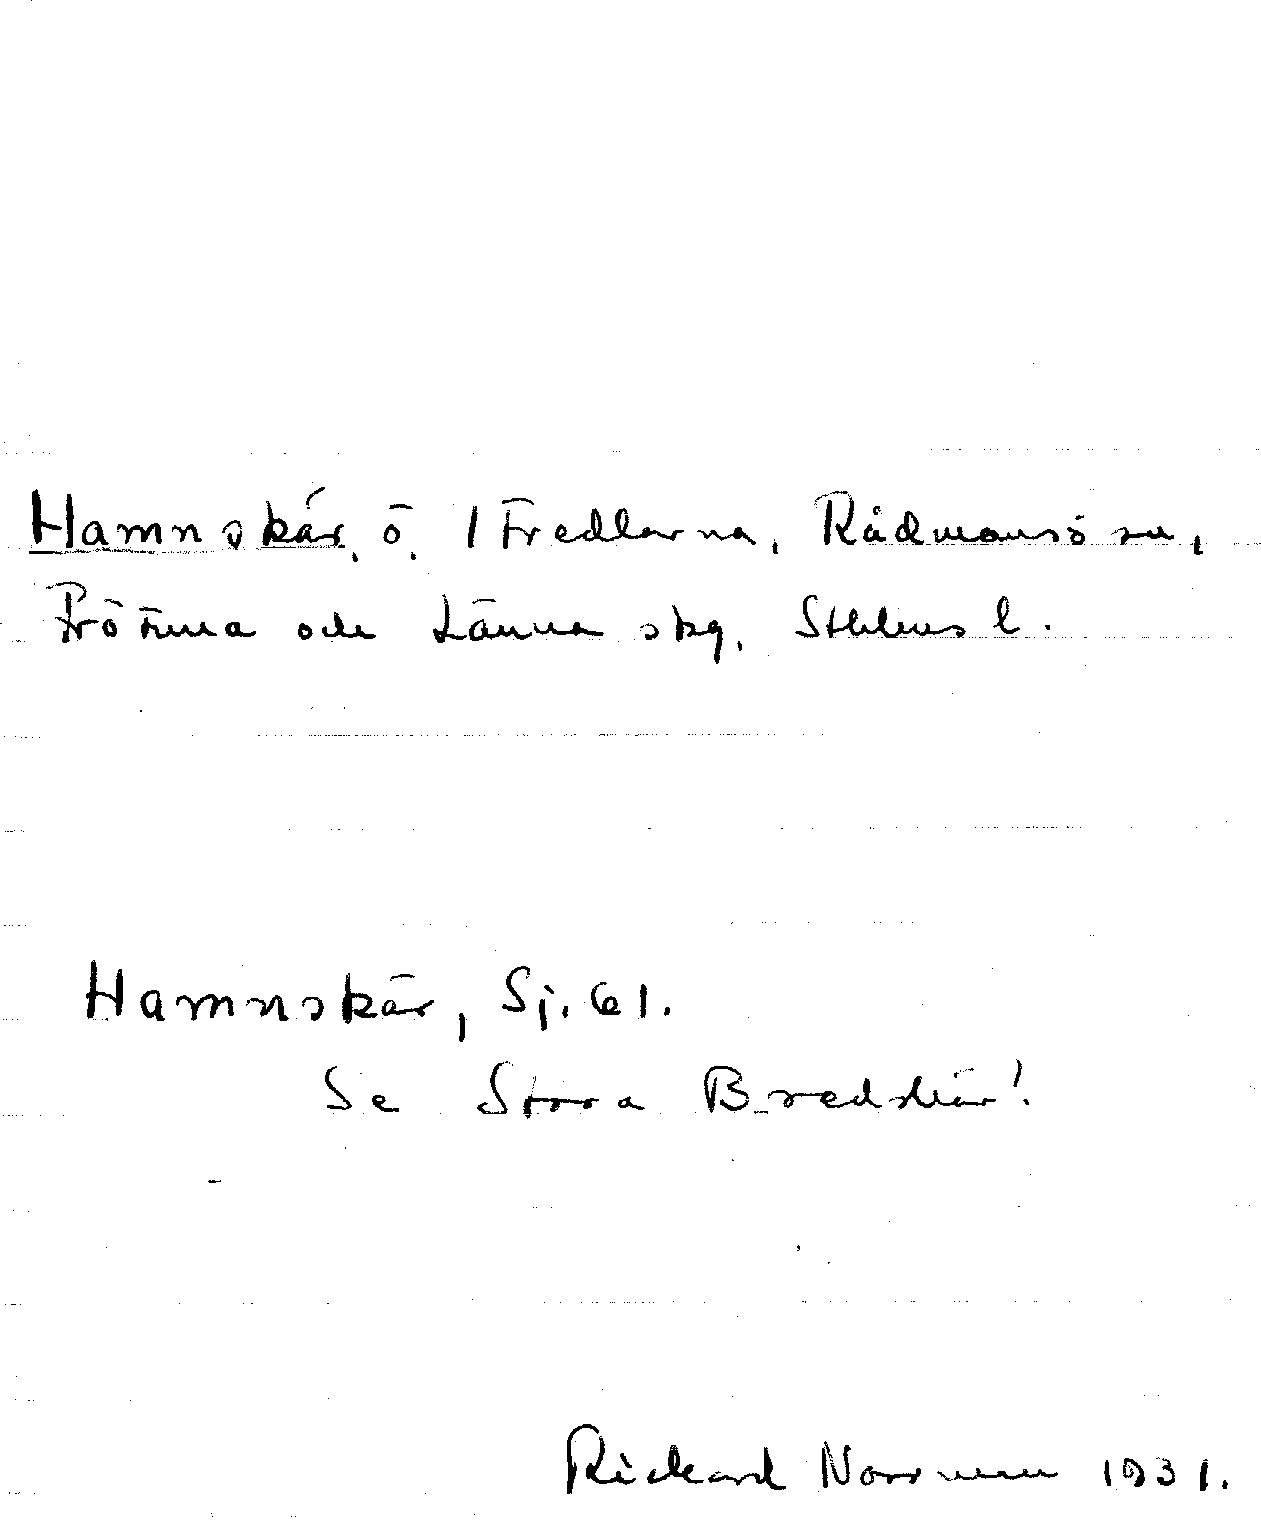 Hamnskär, ö. I Fredlarna, Rådmansö sn,
Frötuna och Länna skg, Sthlms l.
Hamnskär, Sj. 61.
Se Stora Bredskär!
Rickard Norrman 1931.